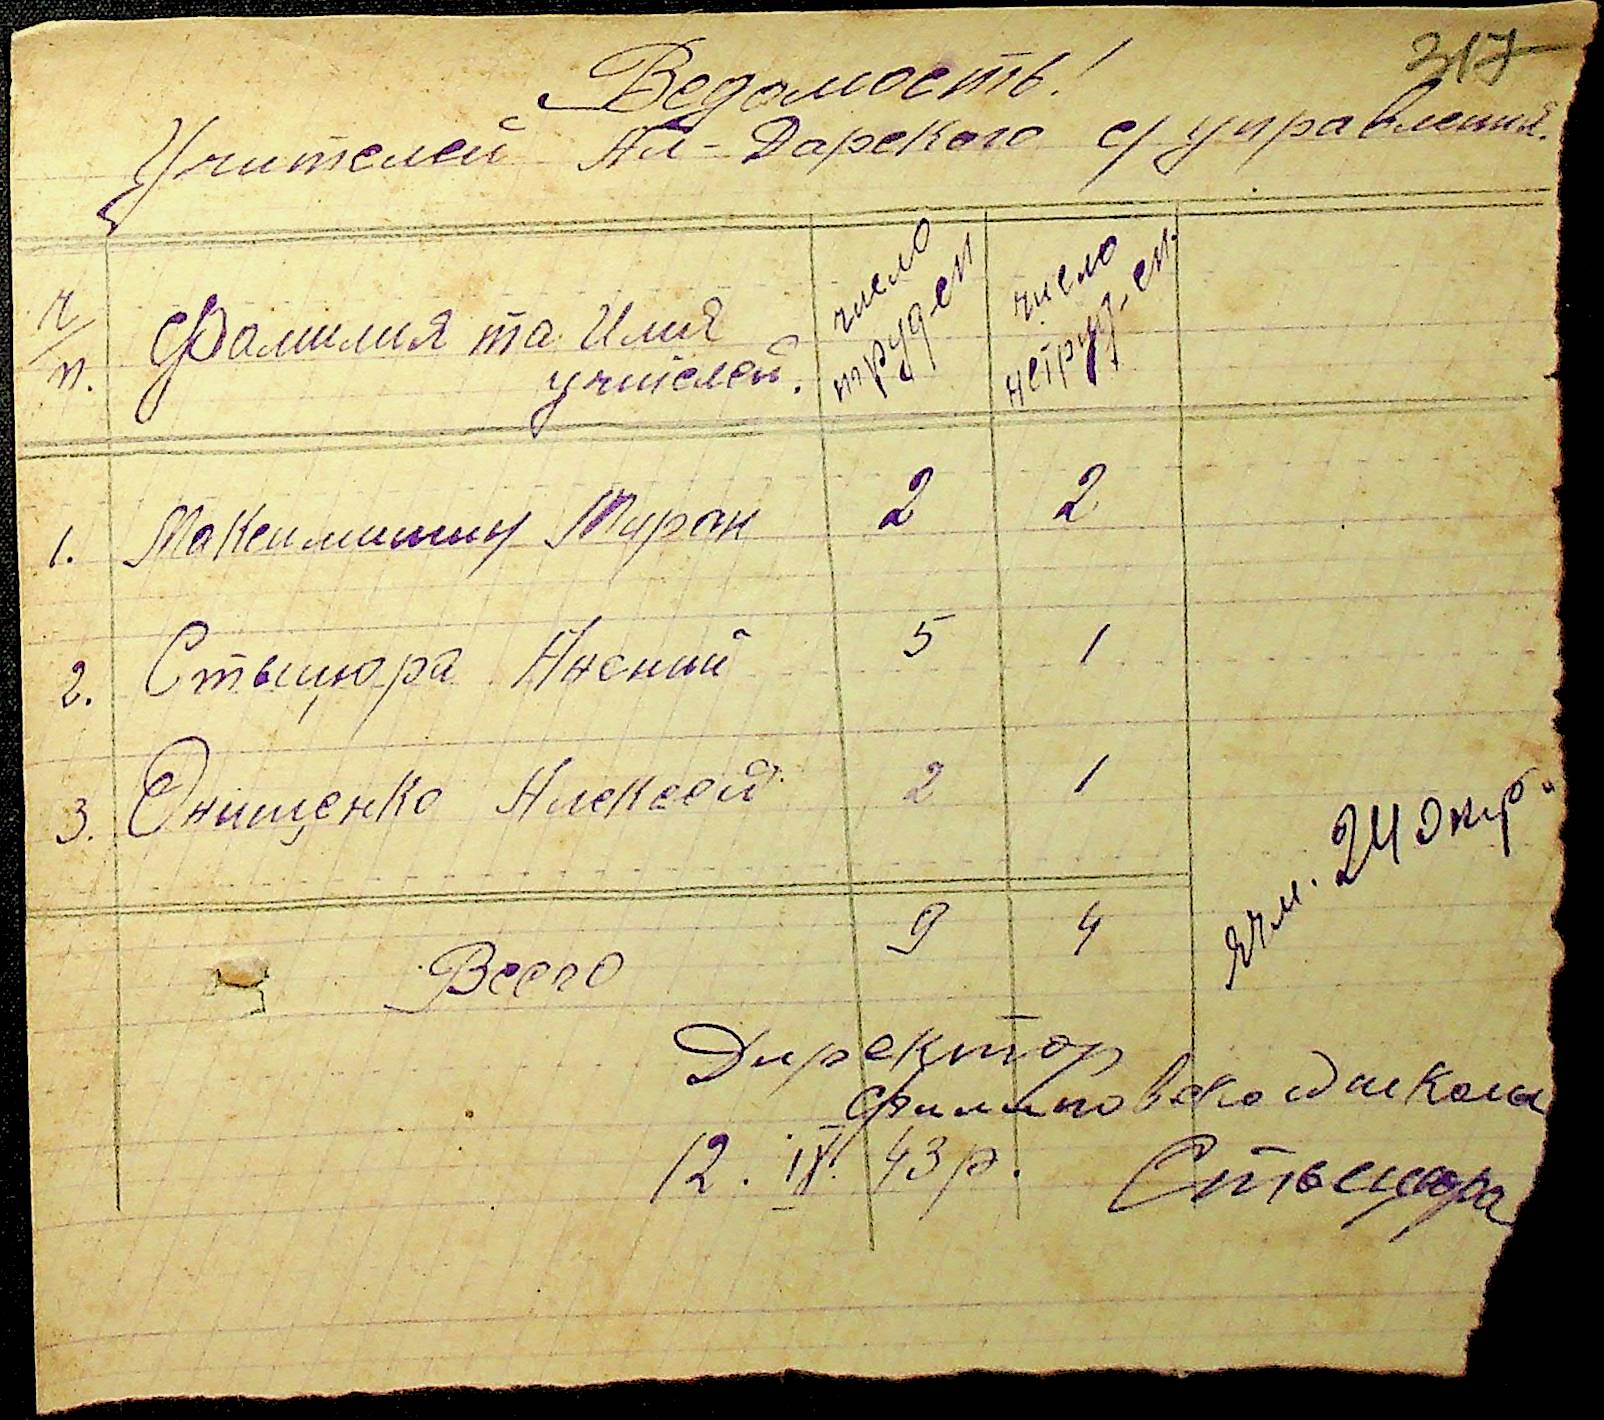 317
Ведомость!
Учителей Ал-Дарского с/управления.
ч/п.
Фамилия та Имя
учителей.
число
труд-сп
число
нетруд-сп.
1. Туран 2 2
2. Стьицюра 5 1
3. Онищенко Алексей 2 1
Всего 9 4
ячм. 24
Директор
Филиповской школы
12. IV. 43 р. Стьецюра